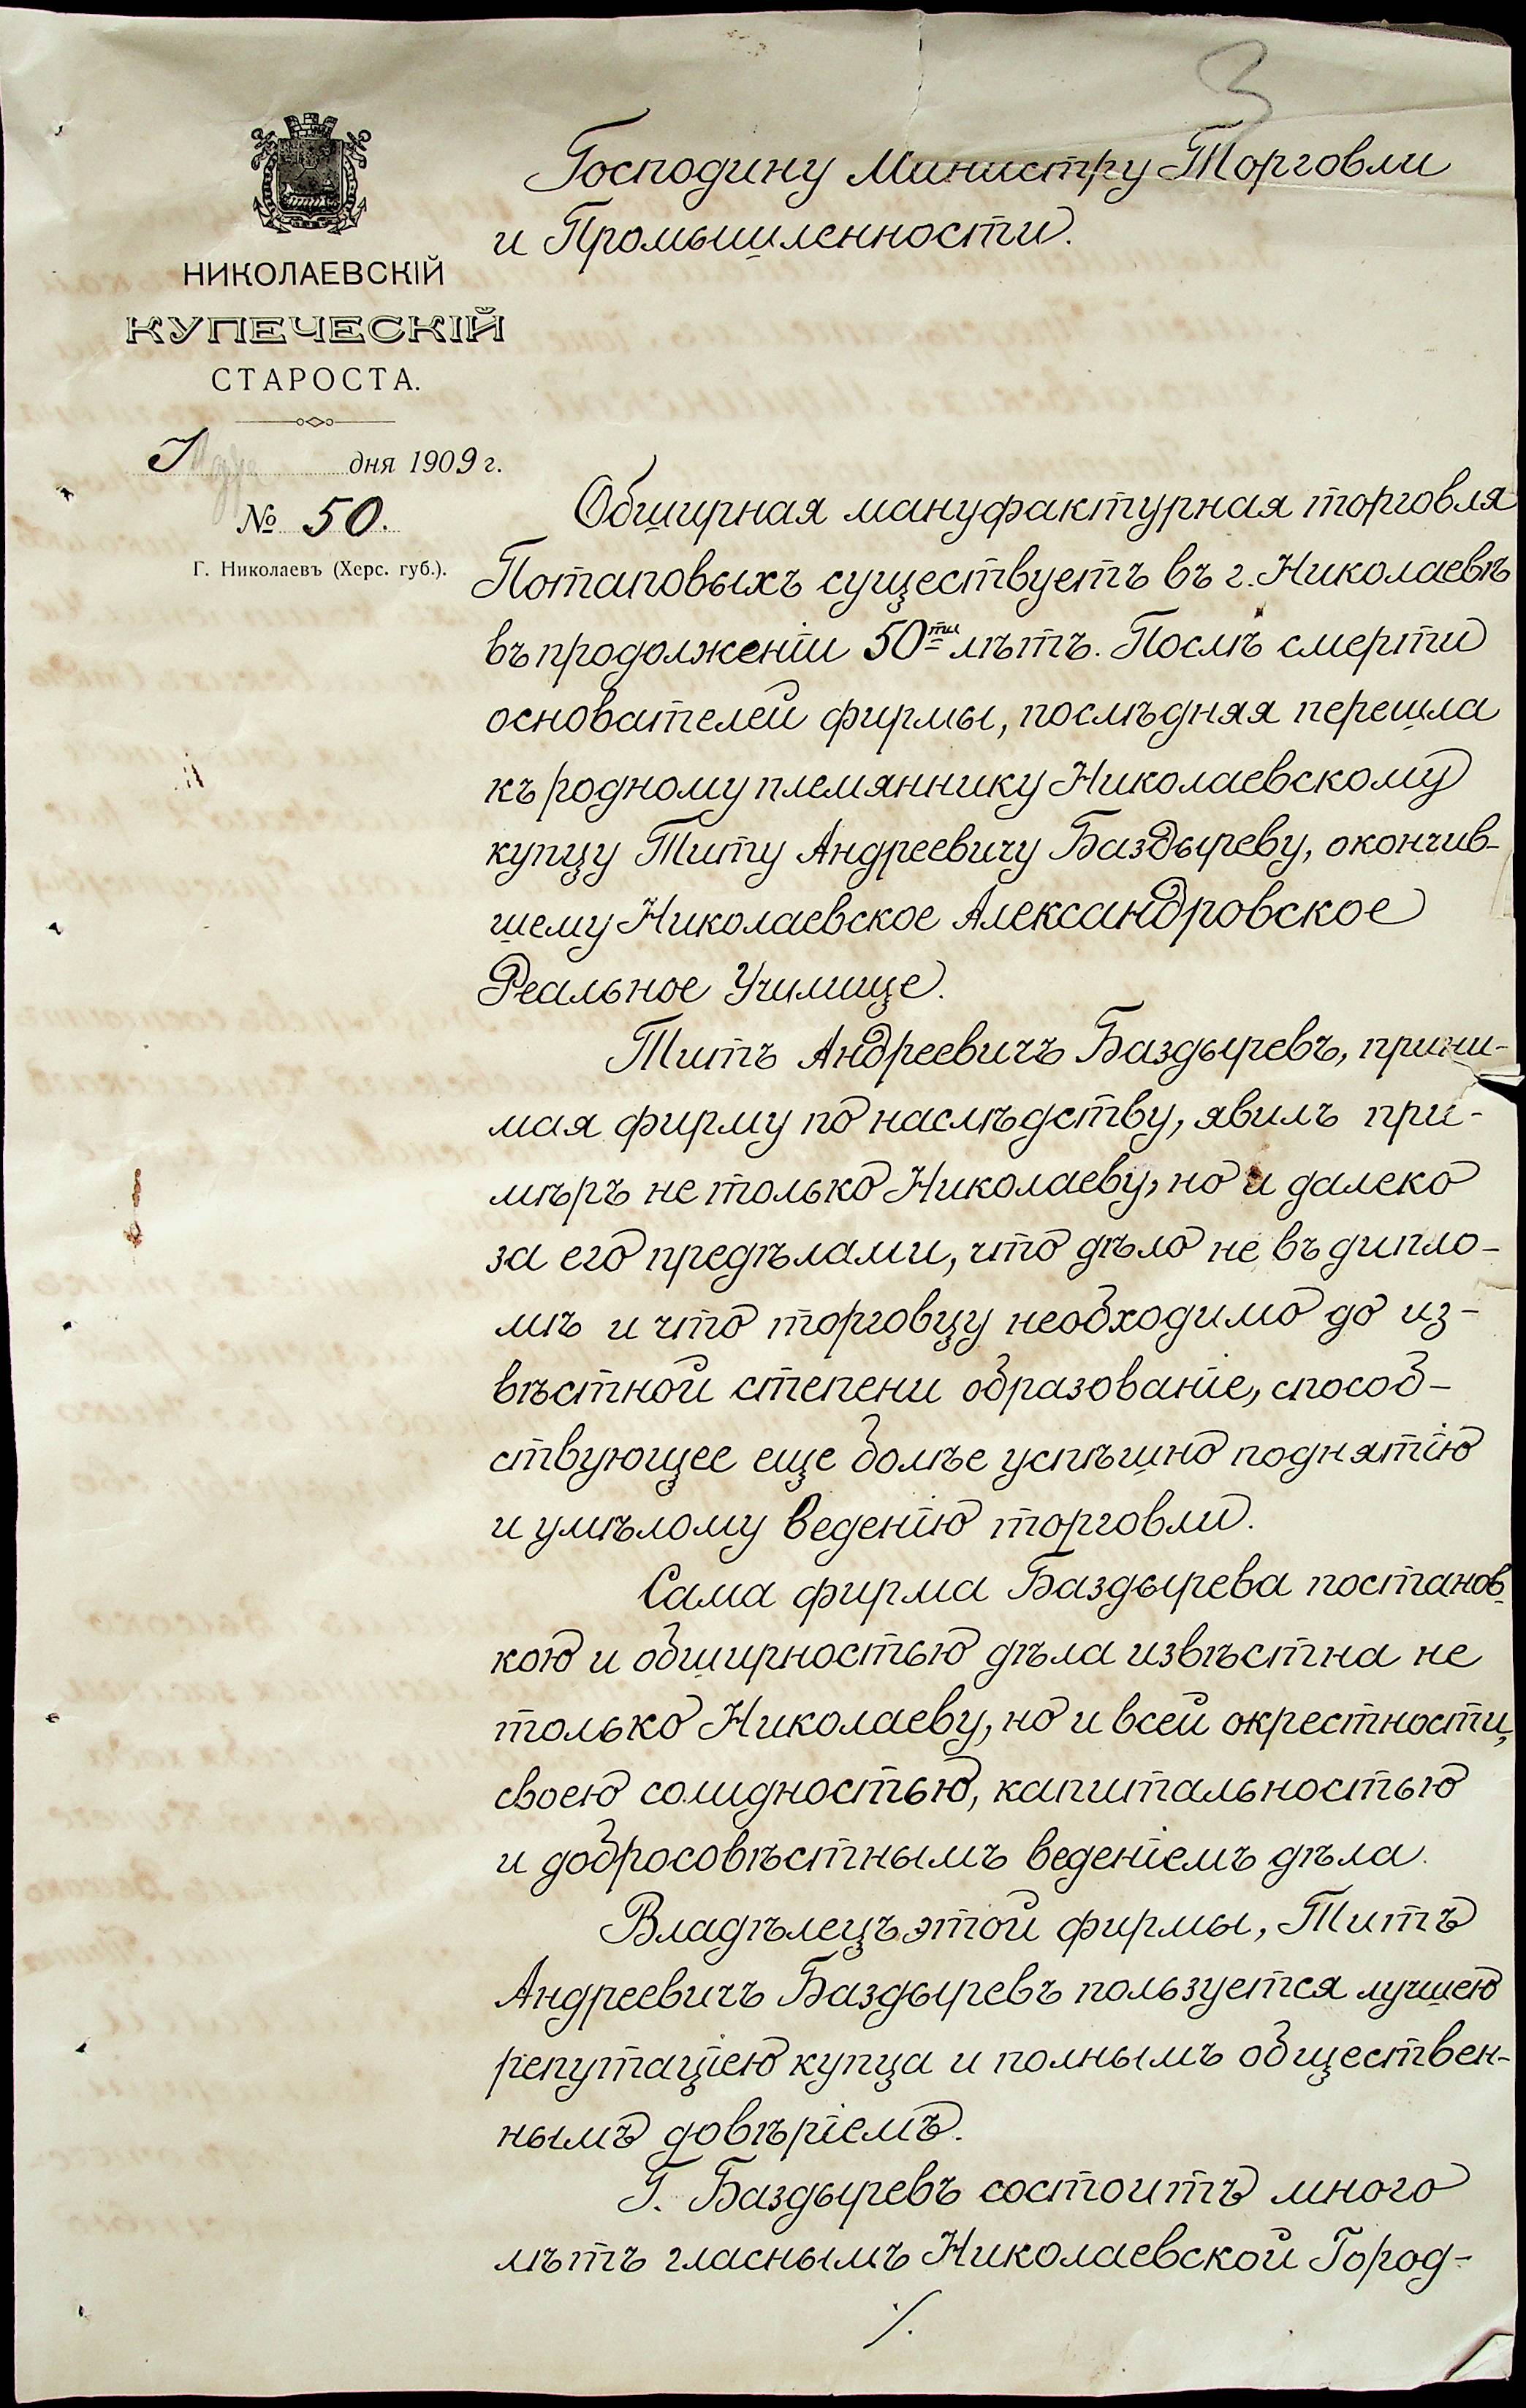 3
Господину Министру Торговли
и Промышленности.
НИКОЛАЕВСКІЙ
КУПЕЧЕСКІЙ
СТАРОСТА.
дня 1909 г.
№ 50.
Г. Николаевъ (Херс. губ.).
Обширная мануфактурная торговля
Потаповыхъ существуетъ въ г. Николаевѣ
въ продолженіи 50ти лѣтъ. Послѣ смерти
основателей фирмы, послѣдняя перешла
къ родному племяннику Николаевскому
купцу Титу Андреевичу Баздыреву, окончив-
шему Николаевское Александровское
Реальное Училище.
Титъ Андреевичъ Баздыревъ, прини-
мая фирму по наслѣдству, явилъ при-
мѣръ не только Николаеву, но и далеко
за его предѣлами, что дѣло не въ дипло-
мѣ и что торговцу необходимо до из-
вѣстной степени образованіе, способ-
ствующее еще болѣе успѣшно поднятію
и умѣлому веденію торговли.
Сама фирма Баздырева постанов-
кою и обширностью дѣла извѣстна не
только Николаеву, но и всей окрестности,
своею солидностью, капитальностью
и добросовѣстнымъ веденіемъ дѣла.
Владѣлецъ этой фирмы, Титъ
Андреевичъ Баздыревъ пользуется лучшею
репутаціею купца и полнымъ обществен-
нымъ довѣріемъ.
Г. Баздыревъ состоитъ много
лѣтъ гласнымъ Николаевской Город-
./.